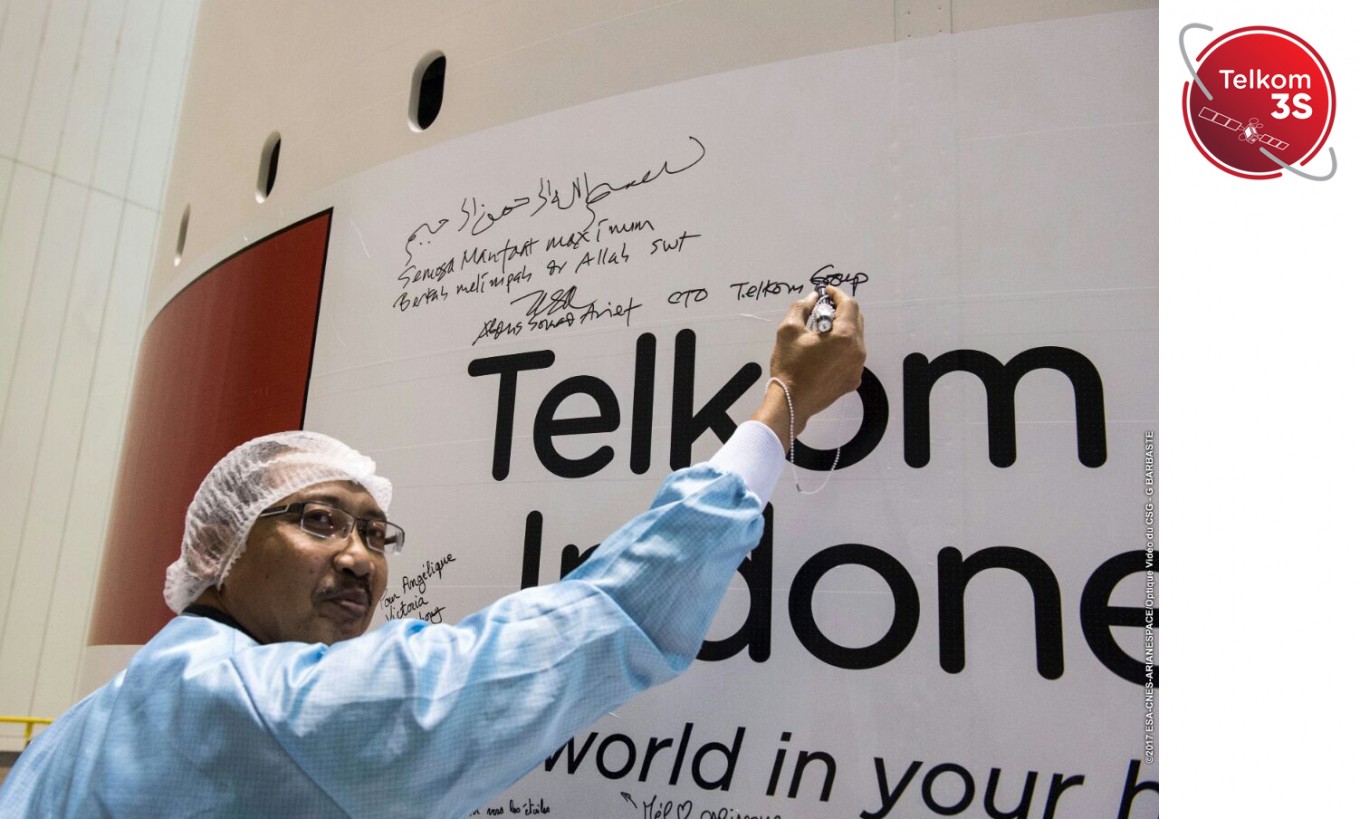 بسم الله الرحمن الرحيم
Semoga Manfaat maximum
Berkah melimpah dr Allah swt
Abdus Somad Arief CTO Telkom Group
Telkom
Indone
world in your h
Tom Angélique
Victoria
vers les étoiles
Mél ♡
Telkom
3S
©2017 ESA-CNES-ARIANESPACE/Optique Vidéo du CSG - G BARBASTE